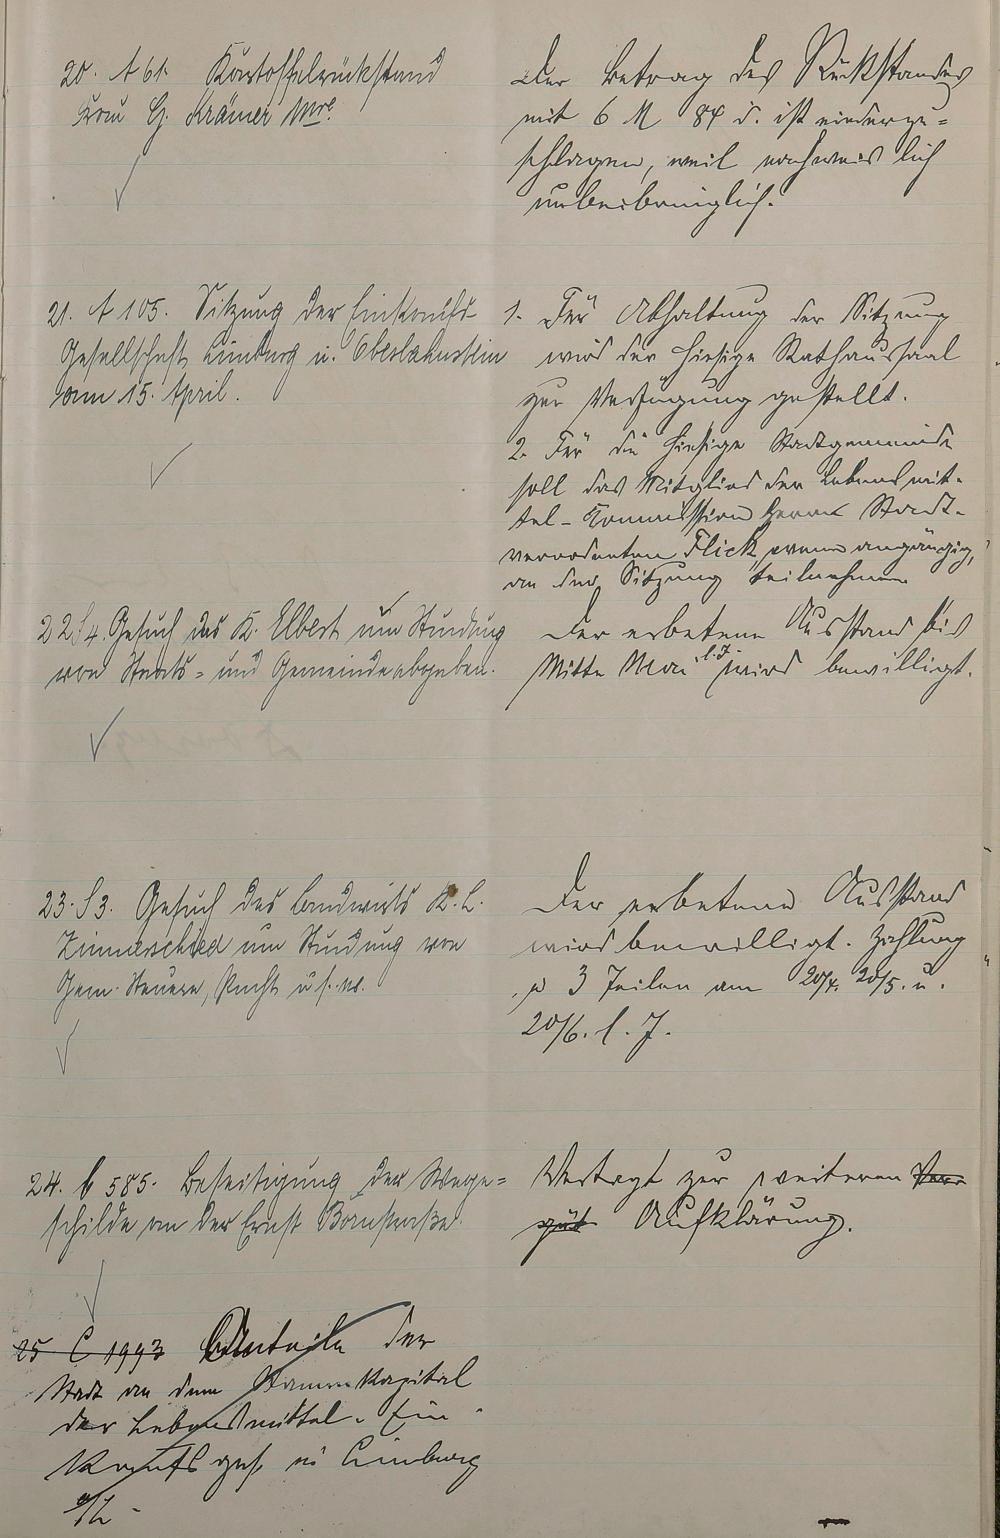 20. A 61. Kartoffelrückstand
von G. Krämer Mre.
Der Betrag des Rückstandes
mit 6 M 84 d. ist niederzu=
schlagen, weil nachweislich
unbeibringlich.
21. A 105. Sitzung der Einkaufs
Gesellschaft Limburg u. Oberlahnstein
am 15. April.
1. Für Abhaltung der Sitzung
wird der hiesige Rathaussaal
zur Verfügung gestellt.
2. Für die hiesige Stadtgemeinde
soll das Mitglied der Lebensmit-
tel-Kommission Herrn Stadt-
verordneten Flick, wenn angängig,
an der Sitzung teilnehmen
22 S 4. Gesuch des K. Elbert um Stundung
von Staats= und Gemeindeabgaben.
Der erbetene Ausstand bis
Mitte Mai l. J. wird bewilligt.
23. S 3. Gesuch des Landwirts K. L.
Zimmerschied um Stundung von
Gem. Steuern, Pacht u. s. w.
Der erbetene Ausstand
wird bewilligt. Zahlung
3 Teilen am 20/4. 20/5. u.
20/6. l. J.
24. b 585. Beseitigung der Wege=
schilde an der Ernst Bornstraße.
Vertagt zur weiteren
Aufklärung.
25 C 1993 Anteile der
Stadt an dem Stammkapital
der Lebensmittel-Ein-
kaufs ges. in Limburg
a/L-